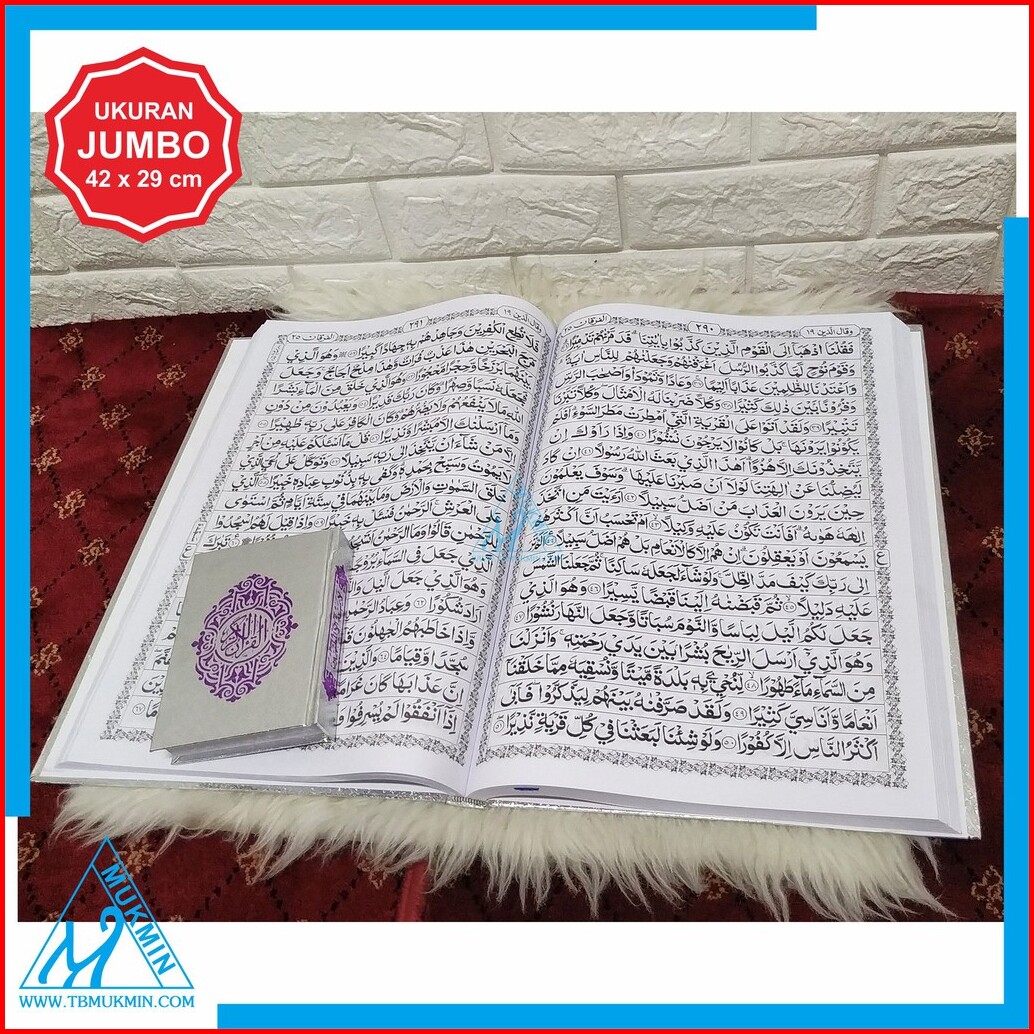 UKURAN
JUMBO
42 x 29 cm
وقال الذين ١٩
٢٩٠
الفرقان ٢٥
فَقُلْنَا اذْهَبَا إِلَى الْقَوْمِ الَّذِينَ كَذَّبُوا بِآيَاتِنَا فَدَمَّرْنَاهُمْ تَدْمِيرًا
وَقَوْمَ نُوحٍ لَمَّا كَذَّبُوا الرُّسُلَ أَغْرَقْنَاهُمْ وَجَعَلْنَاهُمْ لِلنَّاسِ آيَةً
وَأَعْتَدْنَا لِلظَّالِمِينَ عَذَابًا أَلِيمًا وَعَادًا وَثَمُودَ وَأَصْحَابَ الرَّسِّ
وَقُرُونًا بَيْنَ ذَلِكَ كَثِيرًا وَكُلًّا ضَرَبْنَا لَهُ الْأَمْثَالَ وَكُلًّا تَبَّرْنَا
تَتْبِيرًا وَلَقَدْ أَتَوْا عَلَى الْقَرْيَةِ الَّتِي أُمْطِرَتْ مَطَرَ السَّوْءِ أَفَلَمْ
يَكُونُوا يَرَوْنَهَا بَلْ كَانُوا لَا يَرْجُونَ نُشُورًا وَإِذَا رَأَوْكَ إِنْ
يَتَّخِذُونَكَ إِلَّا هُزُوًا أَهَذَا الَّذِي بَعَثَ اللَّهُ رَسُولًا إِنْ كَادَ
لَيُضِلُّنَا عَنْ آلِهَتِنَا لَوْلَا أَنْ صَبَرْنَا عَلَيْهَا وَسَوْفَ يَعْلَمُونَ
حِينَ يَرَوْنَ الْعَذَابَ مَنْ أَضَلُّ سَبِيلًا أَرَأَيْتَ مَنِ اتَّخَذَ
إِلَهَهُ هَوَاهُ أَفَأَنْتَ تَكُونُ عَلَيْهِ وَكِيلًا أَمْ تَحْسَبُ أَنَّ أَكْثَرَهُمْ
يَسْمَعُونَ أَوْ يَعْقِلُونَ إِنْ هُمْ إِلَّا كَالْأَنْعَامِ بَلْ هُمْ أَضَلُّ سَبِيلًا أَلَمْ تَرَ
إِلَى رَبِّكَ كَيْفَ مَدَّ الظِّلَّ وَلَوْ شَاءَ لَجَعَلَهُ سَاكِنًا ثُمَّ جَعَلْنَا الشَّمْسَ
عَلَيْهِ دَلِيلًا ثُمَّ قَبَضْنَاهُ إِلَيْنَا قَبْضًا يَسِيرًا وَهُوَ الَّذِي
جَعَلَ لَكُمُ اللَّيْلَ لِبَاسًا وَالنَّوْمَ سُبَاتًا وَجَعَلَ النَّهَارَ نُشُورًا
وَهُوَ الَّذِي أَرْسَلَ الرِّيَاحَ بُشْرًا بَيْنَ يَدَيْ رَحْمَتِهِ وَأَنْزَلْنَا
مِنَ السَّمَاءِ مَاءً طَهُورًا لِنُحْيِيَ بِهِ بَلْدَةً مَيْتًا وَنُسْقِيَهُ مِمَّا خَلَقْنَا
أَنْعَامًا وَأَنَاسِيَّ كَثِيرًا وَلَقَدْ صَرَّفْنَاهُ بَيْنَهُمْ لِيَذَّكَّرُوا فَأَبَى
أَكْثَرُ النَّاسِ إِلَّا كُفُورًا وَلَوْ شِئْنَا لَبَعَثْنَا فِي كُلِّ قَرْيَةٍ نَذِيرًا
وقال الذين ١٩
٢٩١
الفرقان ٢٥
فَلَا تُطِعِ الْكَافِرِينَ وَجَاهِدْهُمْ بِهِ جِهَادًا كَبِيرًا وَهُوَ الَّذِي
مَرَجَ الْبَحْرَيْنِ هَذَا عَذْبٌ فُرَاتٌ وَهَذَا مِلْحٌ أُجَاجٌ وَجَعَلَ
بَيْنَهُمَا بَرْزَخًا وَحِجْرًا مَحْجُورًا وَهُوَ الَّذِي خَلَقَ مِنَ الْمَاءِ بَشَرًا
فَجَعَلَهُ نَسَبًا وَصِهْرًا وَكَانَ رَبُّكَ قَدِيرًا وَيَعْبُدُونَ مِنْ دُونِ
اللَّهِ مَا لَا يَنْفَعُهُمْ وَلَا يَضُرُّهُمْ وَكَانَ الْكَافِرُ عَلَى رَبِّهِ ظَهِيرًا
وَمَا أَرْسَلْنَاكَ إِلَّا مُبَشِّرًا وَنَذِيرًا قُلْ مَا أَسْأَلُكُمْ عَلَيْهِ مِنْ أَجْرٍ
إِلَّا مَنْ شَاءَ أَنْ يَتَّخِذَ إِلَى رَبِّهِ سَبِيلًا وَتَوَكَّلْ عَلَى الْحَيِّ الَّذِي
لَا يَمُوتُ وَسَبِّحْ بِحَمْدِهِ وَكَفَى بِهِ بِذُنُوبِ عِبَادِهِ خَبِيرًا الَّذِي
خَلَقَ السَّمَاوَاتِ وَالْأَرْضَ وَمَا بَيْنَهُمَا فِي سِتَّةِ أَيَّامٍ ثُمَّ اسْتَوَى
عَلَى الْعَرْشِ الرَّحْمَنُ فَاسْأَلْ بِهِ خَبِيرًا وَإِذَا قِيلَ لَهُمُ اسْجُدُوا
لِلرَّحْمَنِ قَالُوا وَمَا الرَّحْمَنُ تَبَارَكَ
الَّذِي جَعَلَ فِي السَّمَاءِ بُرُوجًا
وَهُوَ الَّذِي جَعَلَ اللَّيْلَ
أَرَادَ شُكُورًا وَعِبَادُ الرَّحْمَنِ
وَإِذَا خَاطَبَهُمُ الْجَاهِلُونَ
سُجَّدًا وَقِيَامًا وَالَّذِينَ
إِنَّ عَذَابَهَا كَانَ غَرَامًا
إِذَا أَنْفَقُوا لَمْ يُسْرِفُوا
القرآن الكريم
MUKMIN
WWW.TBMUKMIN.COM